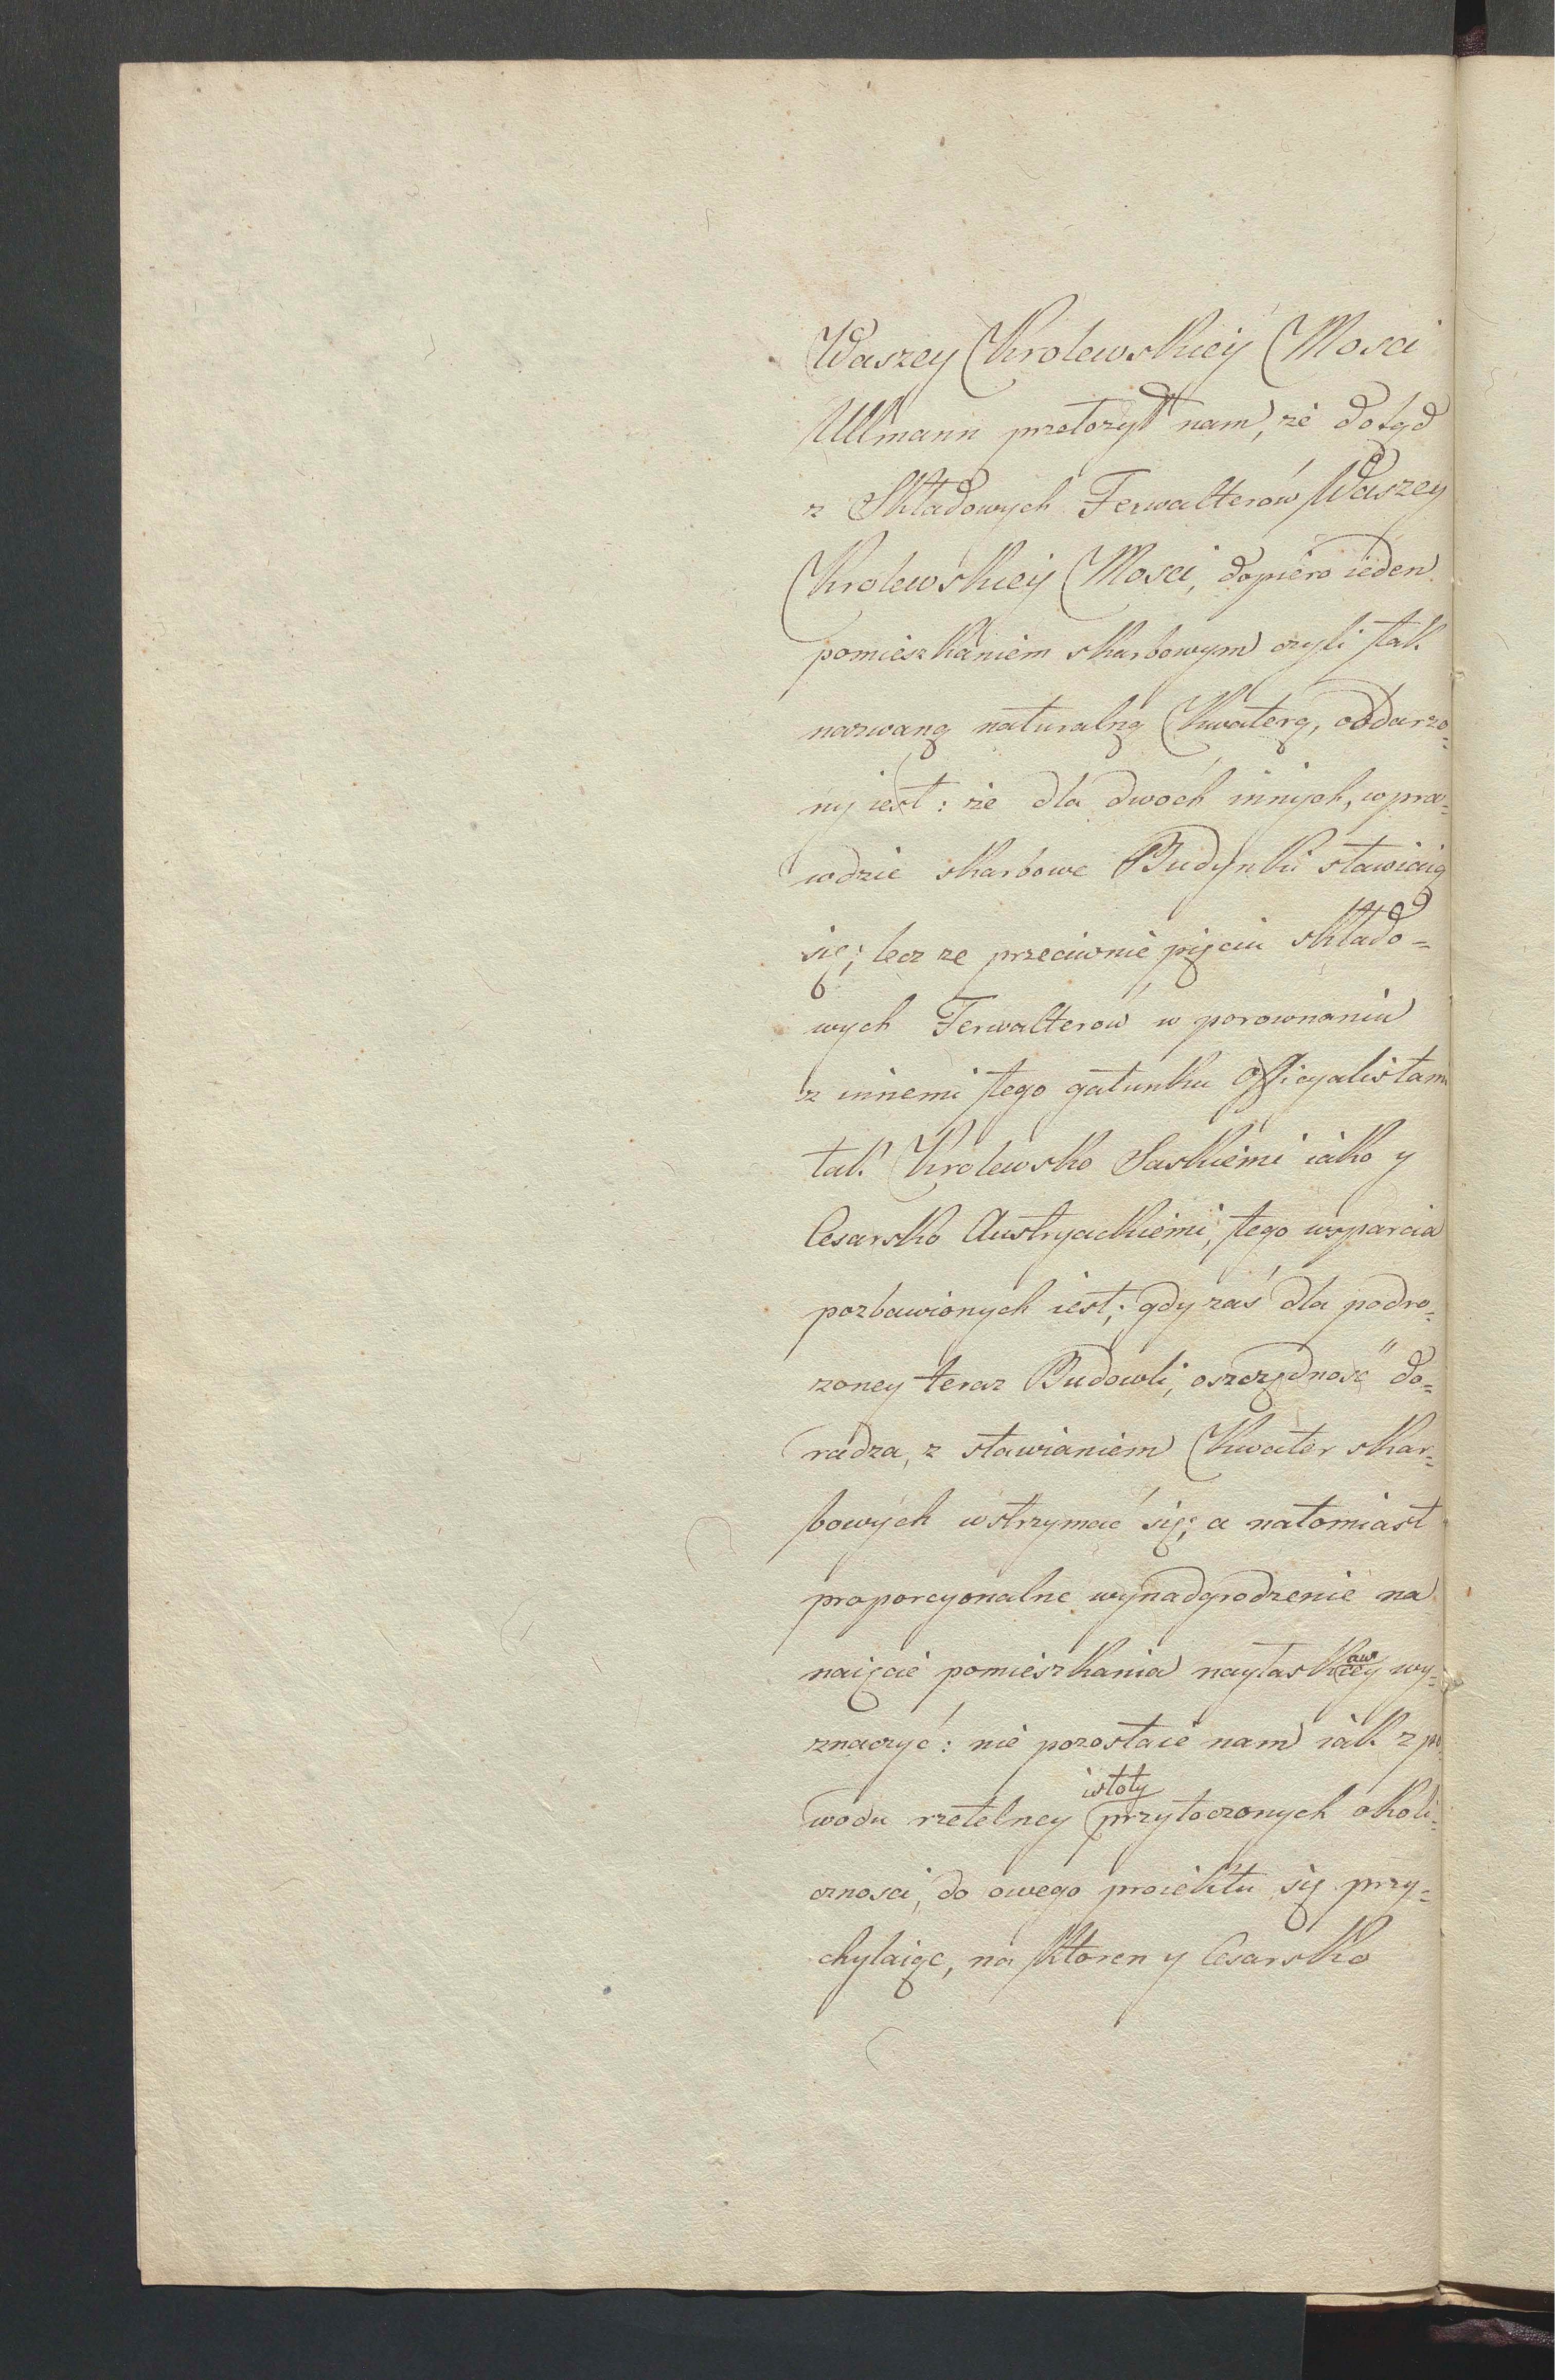 Waszey Krolewskiey Mosci
Ullmann przełozył nam, że dotąd
z Składowych Ferwalterów Waszey
Krolewskiey Mosci, dopiero ieden
pomieszkaniem skarbowym czyli tak
nazwaną naturalną Kwaterą, obdarzo=
ny iest: że dla dwóch innych, wpra=
wdzie skarbowe Budynki stawiaią
się; lecz ze przeciwnie pięciu składo=
wych Ferwalterów w porownaniu
z innemi tego gatunku Officyalistam
tak Krolewsko Saskiemi iako y
Cesarsko Austryackiemi, tego wsparcia
pozbawionych iest; gdy zaś dla podro=
zoney teraz Budowli, oszczędność do=
radza, z stawianiem Kwater skar=
bowych wstrzymać się; a natomiast
proporcyonalne wynadgrodzenie na
naięcie pomieszkania wy=
znaczyć: nie pozostaie nam iak z po
wodu rzetelney istoty przytoczonych okoli=
cznosci, do owego proiektu się przy=
chylaiąc, na ktoren y Cesarsko